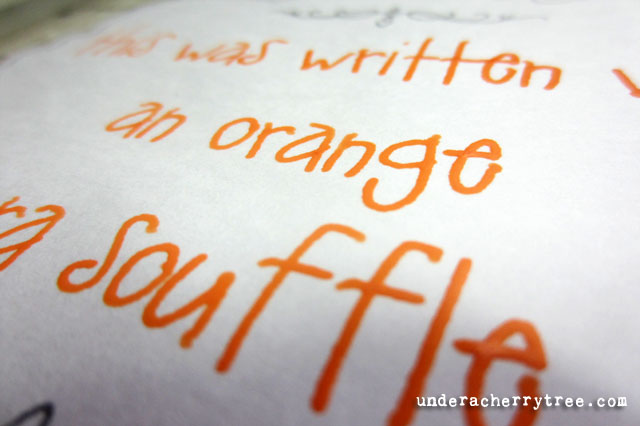 this was written
an orange
souffle
underacherrytree.com